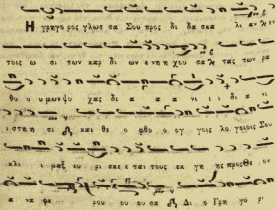 Η γρηγορος γλωσσα Σου προς διδασκα λιαν εν
τοις ω σι των καρδι ων ενηχουσα τας των ρα
θυ υ μων ψυ χας δι α α α νι ι δι α νι
ι στησι και θε ο φθο ο ογ γοις λογοις Σου
κλι μαξ ευ ρι σκε ται τους εκ γης προς Θε ον
α να φε ρου ου ου σα Δι ο Γρη γο ρι